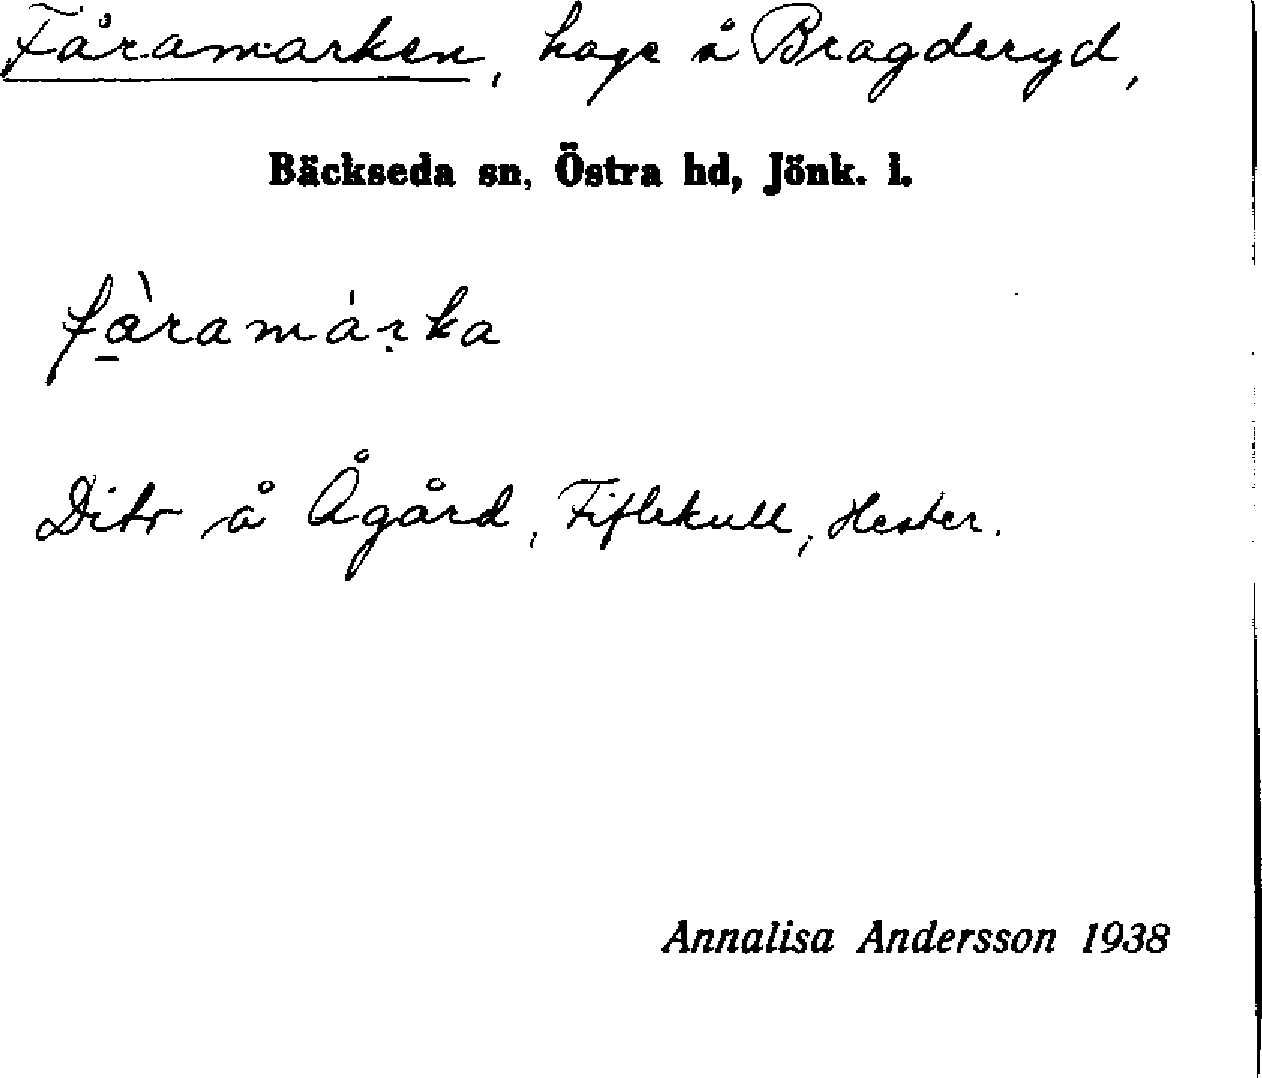 Fåramarken, hage å Bragderyd,
Bäckseda sn, Östra hd, Jönk. l.
fàramárka
Dito å Ågård, Fiflekull, Hester.
Annalisa Andersson 1938